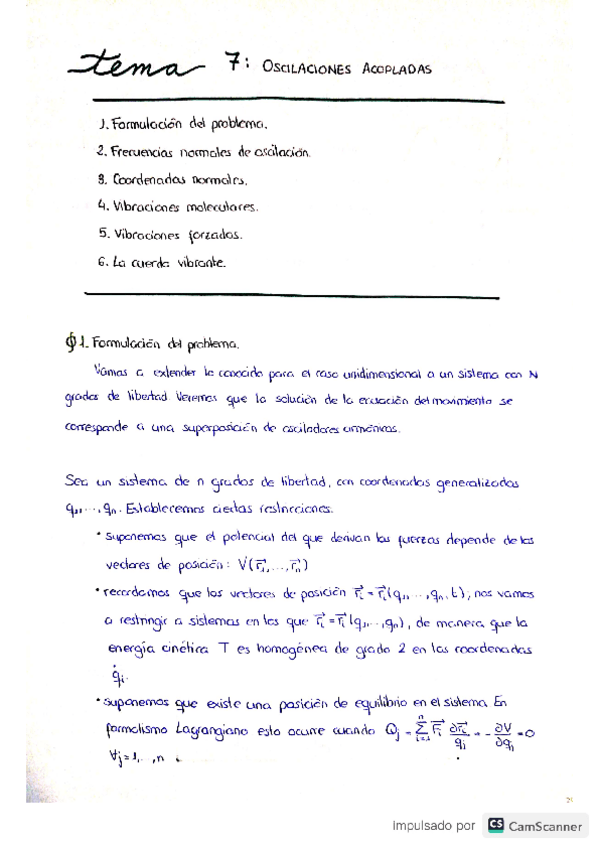 tema 7: OSCILACIONES ACOPLADAS
1. Formulación del problema.
2. Frecuencias normales de oscilación.
3. Coordenadas normales.
4. Vibraciones moleculares.
5. Vibraciones forzadas.
6. La cuerda vibrante.
§1. Formulación del problema.
Vamos a extender lo conocido para el caso unidimensional a un sistema con N
grados de libertad. Veremos que la solución de la ecuación del movimiento se
corresponde a una superposición de osciladores armónicos.
Sea un sistema de n grados de libertad, con coordenadas generalizadas
q₁,...,qₙ. Establecemos ciertas restricciones.
• suponemos que el potencial del que derivan las fuerzas depende de los
vectores de posición: V(r⃗₁,...,r⃗ₙ)
• recordamos que los vectores de posición r⃗ᵢ = r⃗ᵢ(q₁,...,qₙ,t); nos vamos
a restringir a sistemas en los que r⃗ᵢ = r⃗ᵢ(q₁,...,qₙ), de manera que la
energía cinética T es homogénea de grado 2 en las coordenadas
q̇ᵢ.
• suponemos que existe una posición de equilibrio en el sistema. En
formalismo Lagrangiano esto ocurre cuando Qⱼ = Σᵢ₌₁ⁿ F⃗ᵢ ∂r⃗ᵢ/qⱼ = -∂V/∂qⱼ = 0
∀j=1,..,n
Impulsado por CS CamScanner